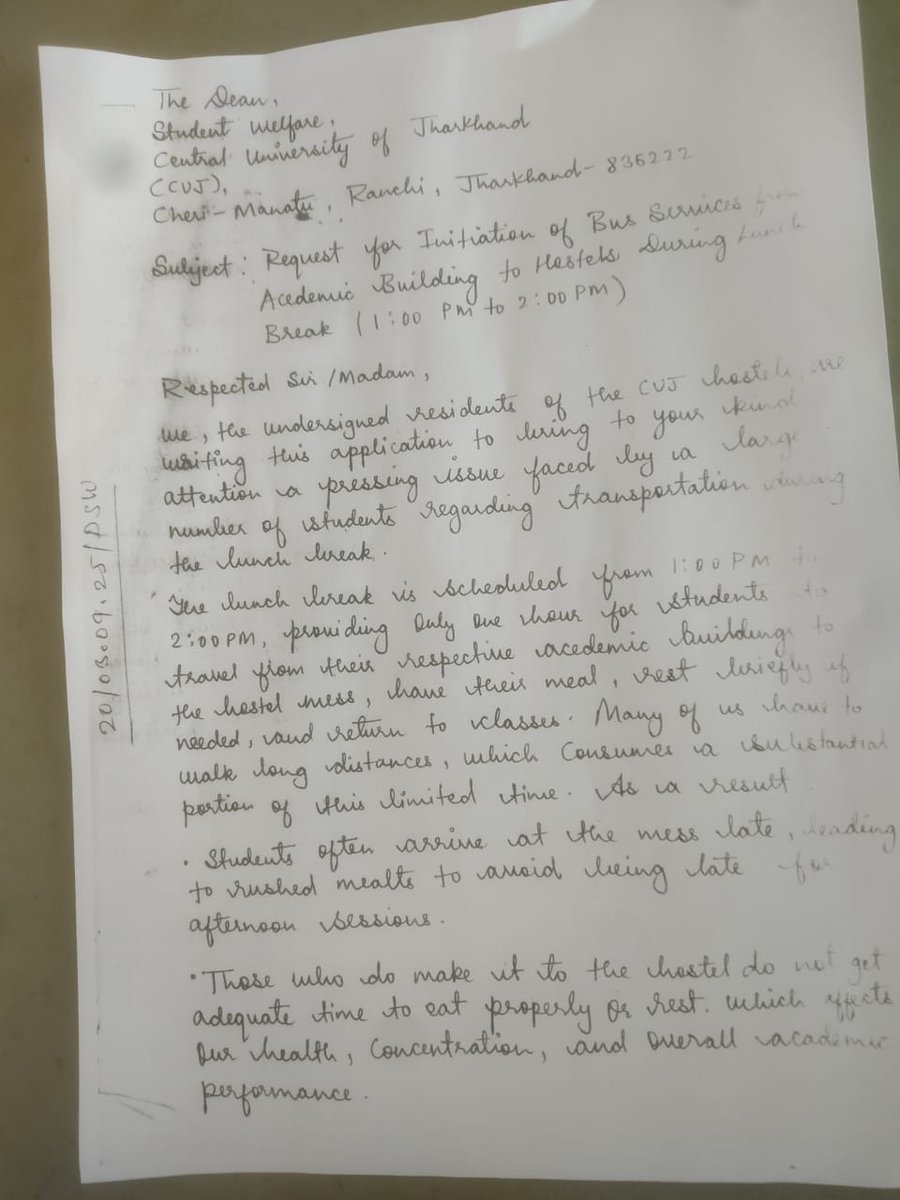 The Dean,
Student Welfare,
Central University of Jharkhand
(CUJ),
Cheri-Manatu, Ranchi, Jharkhand- 835222
Subject: Request for Initiation of Bus Services from
Acedemic Building to Hostels During Lunch
Break (1:00 PM to 2:00 PM)
Respected Sir/Madam,
We, the undersigned residents of the CUJ hostels, are
writing this application to bring to your kind
attention a pressing issue faced by a large
number of students regarding transportation during
the lunch break.
The lunch break is scheduled from 1:00 PM to
2:00 PM, providing only one hour for students to
travel from their respective acedemic buildings to
the hostel mess, have their meal, rest briefly if
needed, and return to classes. Many of us have to
walk long distances, which Consumes a substantial
portion of this limited time. As a result
• Students often arrive at the mess late, leading
to rushed mealts to avoid being late for
afternoon sessions.
• Those who do make it to the hostel do not get
adequate time to eat properly or rest. which affects
Our health, Concentration, and overall academic
performance.
20/03.09.25/DSW